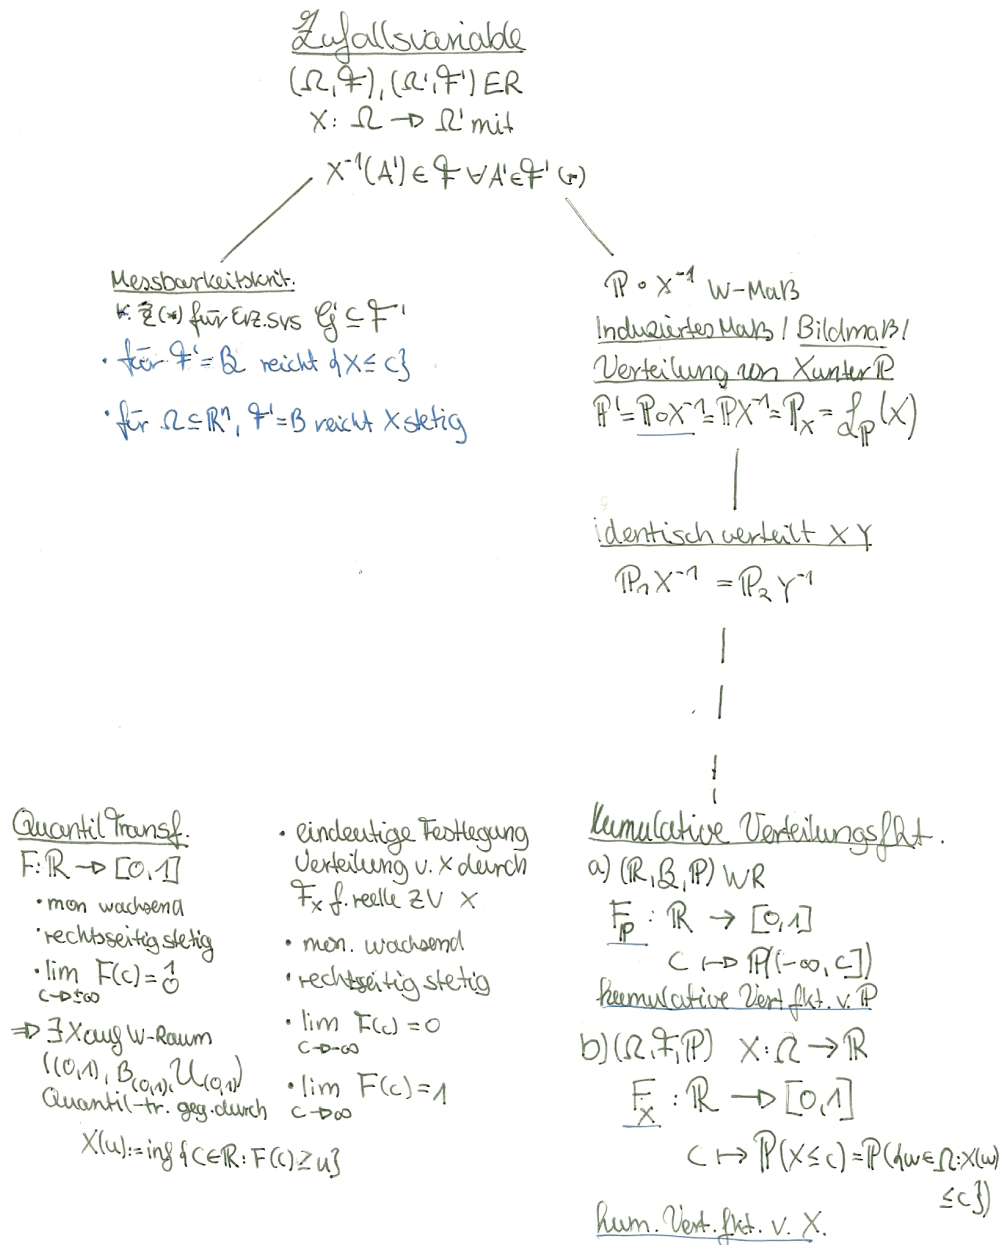 Zufallsvariable
(Ω,𝓕), (Ω',𝓕') ER
X: Ω → Ω' mit
X⁻¹(A') ∈ 𝓕 ∀A'∈𝓕' (*)
Messbarkeitskrit.
(*) für Erz.sys 𝒢' ⊆ 𝓕'
• für 𝓕'=𝓑 reicht {X ≤ c}
• für Ω ⊆ ℝⁿ, 𝓕'=𝓑 reicht X stetig
ℙ ∘ X⁻¹ W-Maß
Induziertes Maß / Bildmaß /
Verteilung von X unter ℙ
ℙ' = ℙ∘X⁻¹ = ℙX⁻¹ = ℙ_X = ℒ_ℙ(X)
identisch verteilt X Y
ℙ₁X⁻¹ = ℙ₂Y⁻¹
Quantil Transf.
F: ℝ → [0,1]
• mon wachsend
• rechtsseitig stetig
• lim F(c) = 1 0
c→±∞
⇒ ∃ X auf W-Raum
((0,1), 𝓑_(0,1), 𝒰_(0,1))
Quantil-tr. geg. durch
X(u) := inf {c∈ℝ: F(c) ≥ u}
• eindeutige Festlegung
Verteilung v. X durch
F_X f. reelle ZV X
• mon. wachsend
• rechtsseitig stetig
• lim F(c) = 0
c→-∞
• lim F(c) = 1
c→∞
kumulative Verteilungsfkt.
a) (ℝ, 𝓑, ℙ) WR
F_ℙ : ℝ → [0,1]
c ↦ ℙ((-∞, c])
kumulative Vert.fkt. v. ℙ
b) (Ω, 𝓕, ℙ) X: Ω → ℝ
F_X : ℝ → [0,1]
c ↦ ℙ(X ≤ c) = ℙ({ω ∈ Ω: X(ω)
≤ c})
kum. Vert. fkt. v. X.